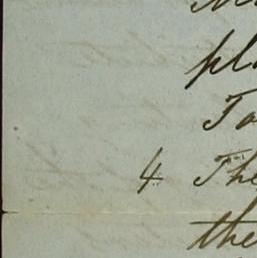 pl
To
4. The
the